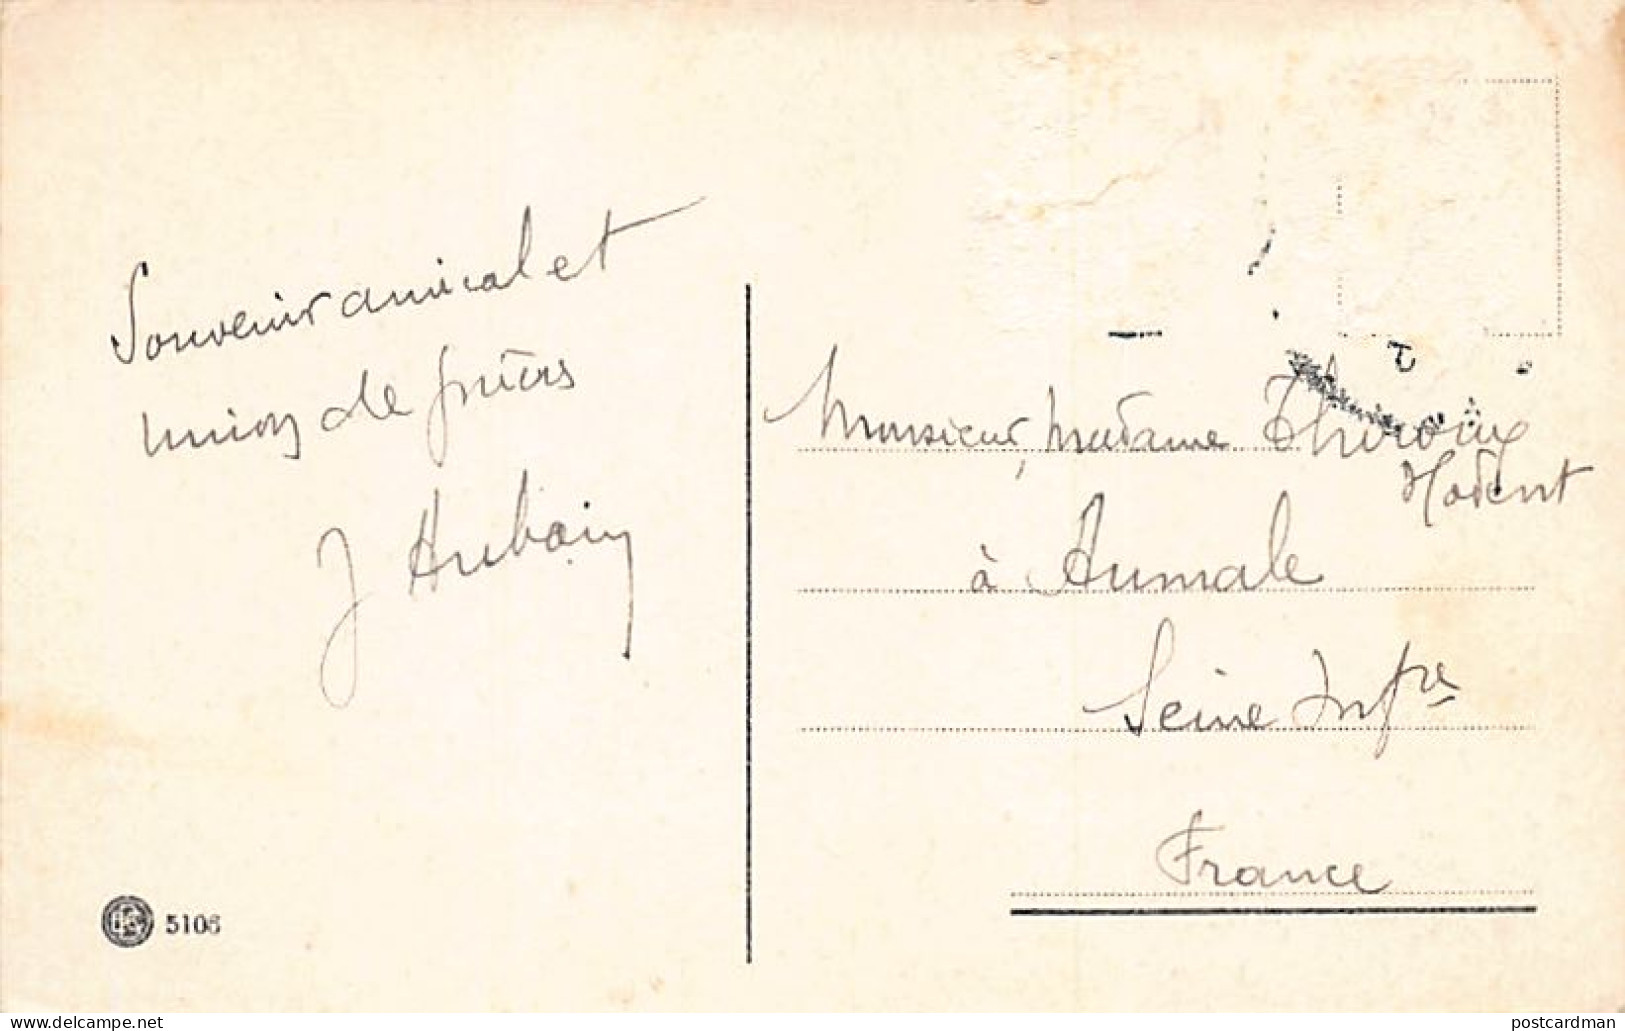 Souvenir amical et
union de prières
J Aubain
Monsieur, Madame Théroux
à Aumale
Seine Infre
France
5106
www.delcampe.net
postcardman